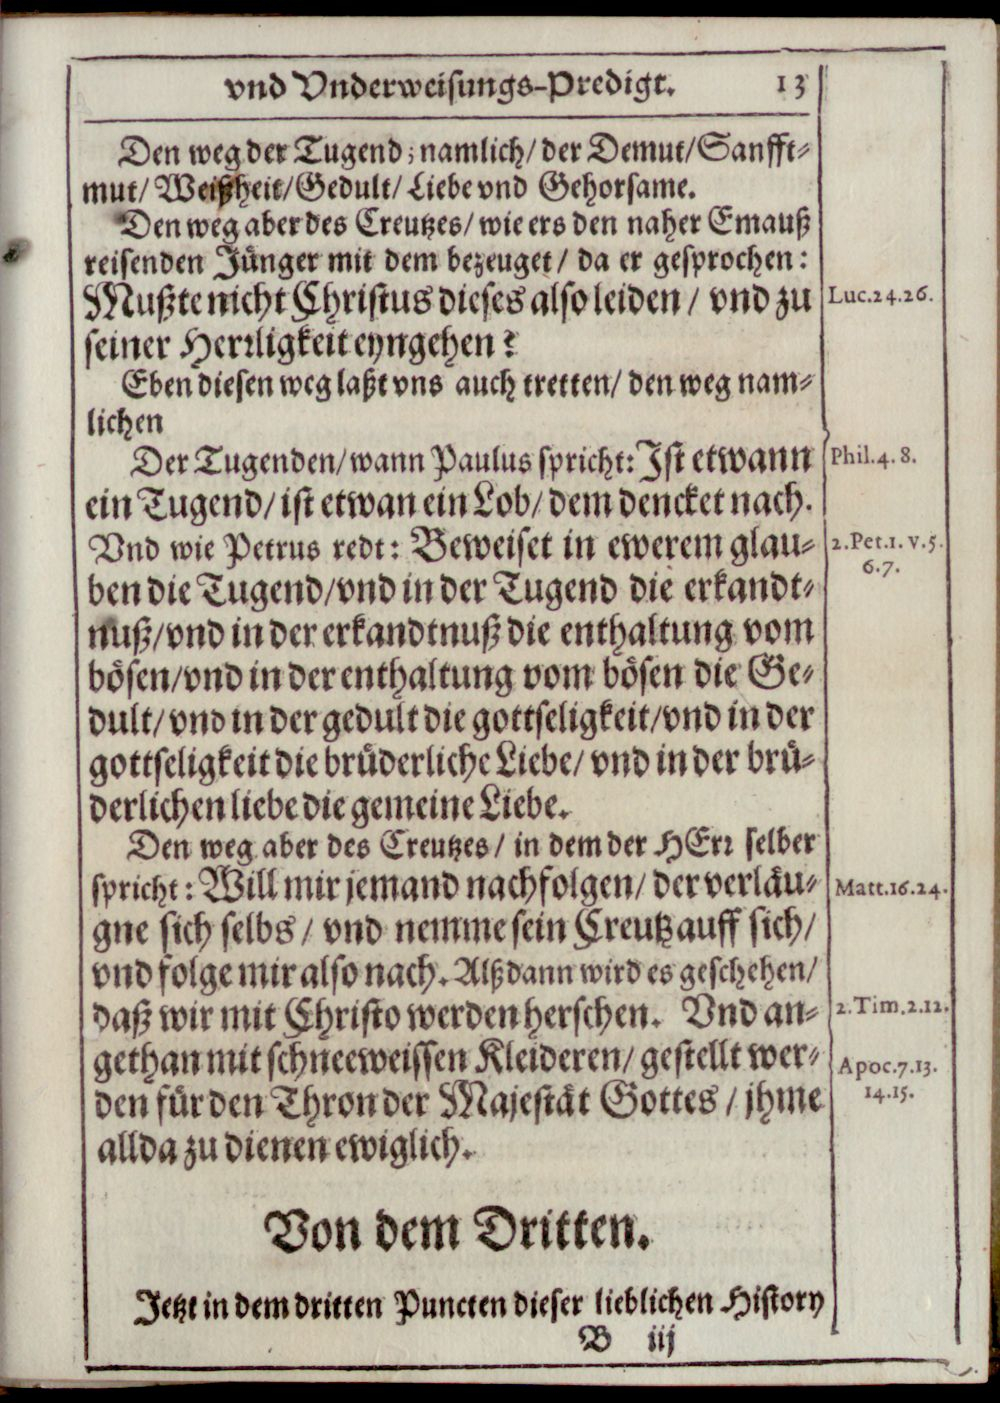 vnd Vnderweisungs-Predigt. 13
Den weg der Tugend; namlich/ der Demut/ Sanfft-
mut/ Weißheit/ Gedult/ Liebe vnd Gehorsame.
Den weg aber des Creutzes/ wie ers den naher Emauß
reisenden Jünger mit dem bezeuget/ da er gesprochen:
Mußte nicht Christus dieses also leiden/ vnd zu
Luc.24.26.
seiner Herrligkeit eyngehen?
Eben diesen weg laßt vns auch tretten/ den weg nam-
lichen
Der Tugenden/ wann Paulus spricht: Ist etwann
Phil.4.8.
ein Tugend/ ist etwan ein Lob/ dem dencket nach.
Vnd wie Petrus redt: Beweiset in ewerem glau-
2.Pet.1.v.5.
6.7.
ben die Tugend/ vnd in der Tugend die erkandt-
nuß/ vnd in der erkandtnuß die enthaltung vom
bösen/ vnd in der enthaltung vom bösen die Ge-
dult/ vnd in der gedult die gottseligkeit/ vnd in der
gottseligkeit die brüderliche Liebe/ vnd in der brü-
derlichen liebe die gemeine Liebe.
Den weg aber des Creutzes/ in dem der HErr selber
spricht: Will mir jemand nachfolgen/ der verläu-
Matt.16.24.
gne sich selbs/ vnd nemme sein Creutz auff sich/
vnd folge mir also nach. Alßdann wird es geschehen/
daß wir mit Christo werden herschen. Vnd an-
2.Tim.2.12.
gethan mit schneeweissen Kleideren/ gestellt wer-
Apoc.7.13.
14.15.
den für den Thron der Majestät Gottes/ jhme
allda zu dienen ewiglich.
Von dem Dritten.
Jetzt in dem dritten Puncten dieser lieblichen History
B iij